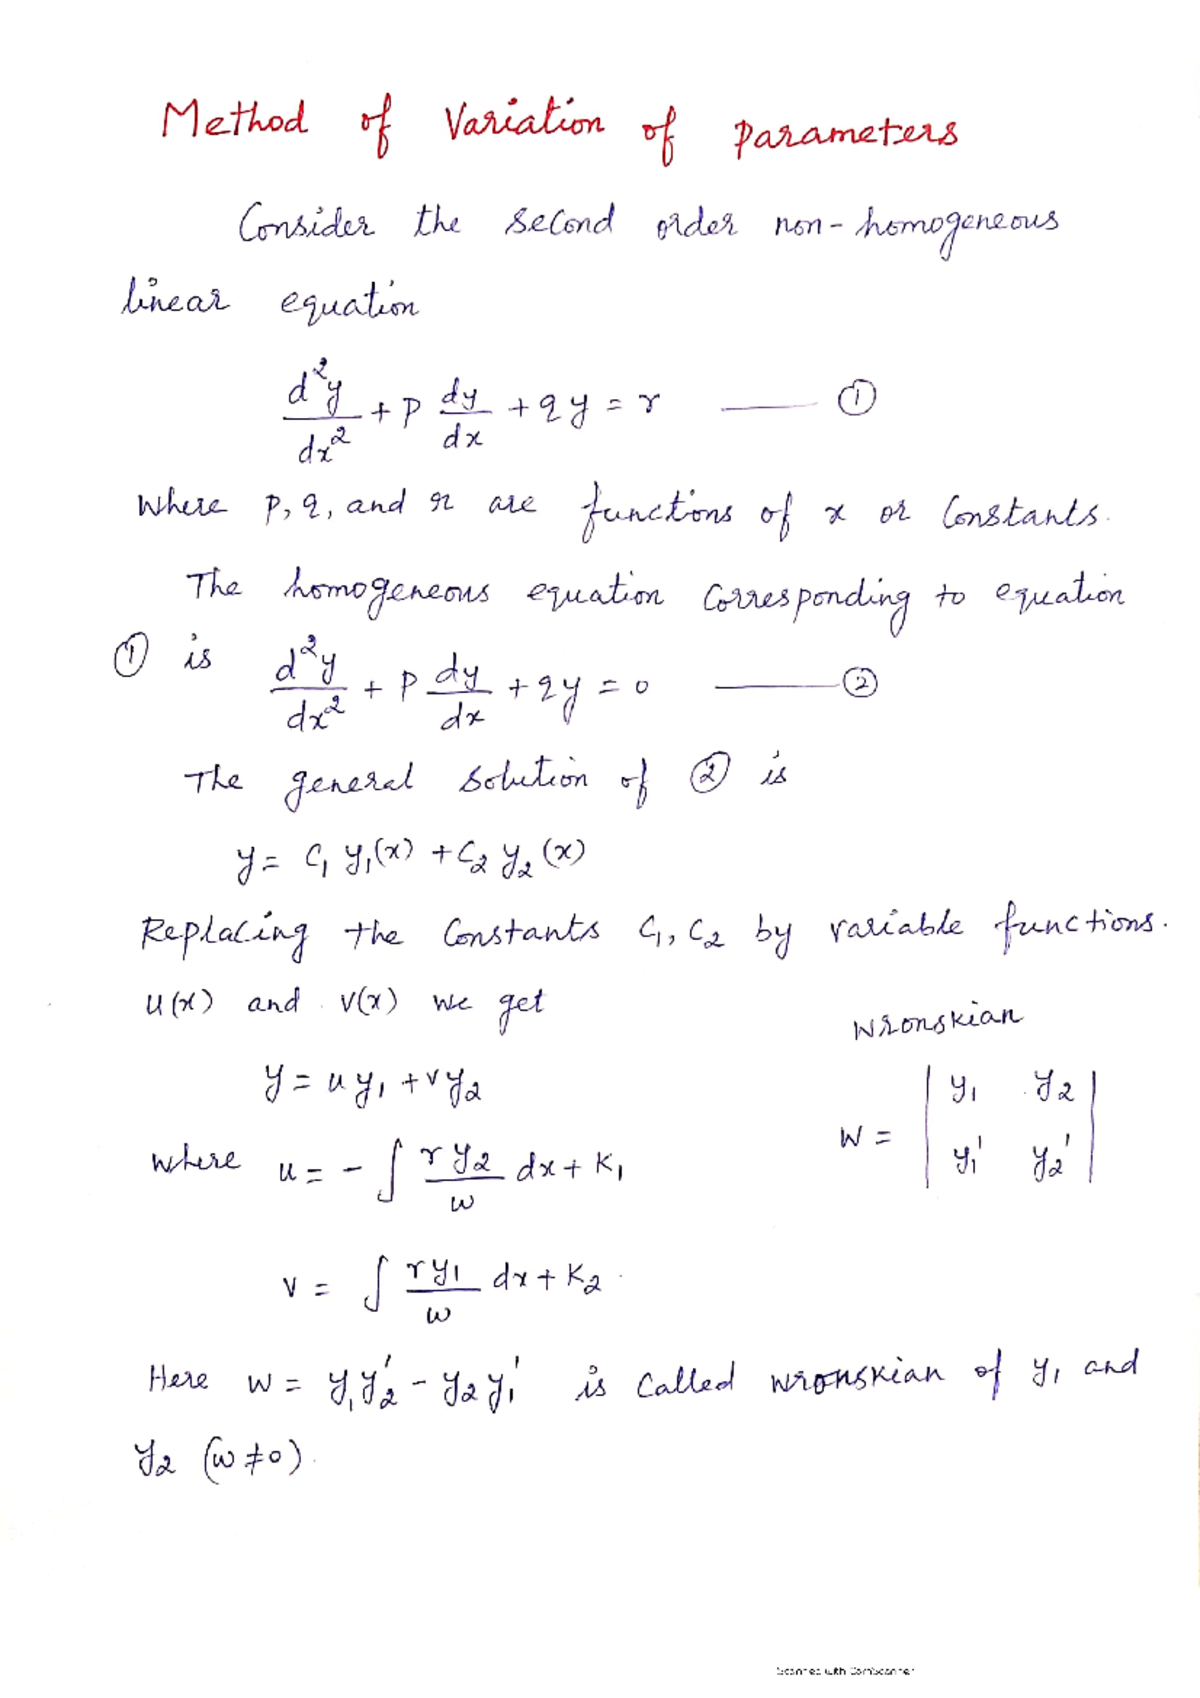 Method of Variation of parameters
Consider the second order non-homogeneous
linear equation
d²y/dx² + p dy/dx + qy = r —— ①
Where p, q, and r are functions of x or Constants.
The homogeneous equation Corresponding to equation
① is d²y/dx² + p dy/dx + qy = 0 —— ②
The general Solution of ② is
y = C₁ y₁(x) + C₂ y₂(x)
Replacing the Constants C₁, C₂ by variable functions.
u(x) and v(x) we get
Wronskian
y = u y₁ + v y₂
W = | y₁ y₂ |
| y₁' y₂' |
where u = - ∫ r y₂/w dx + K₁
v = ∫ r y₁/w dx + K₂.
Here w = y₁y₂' - y₂y₁' is Called wronskian of y₁ and
y₂ (w ≠ 0).
Scanned with CamScanner